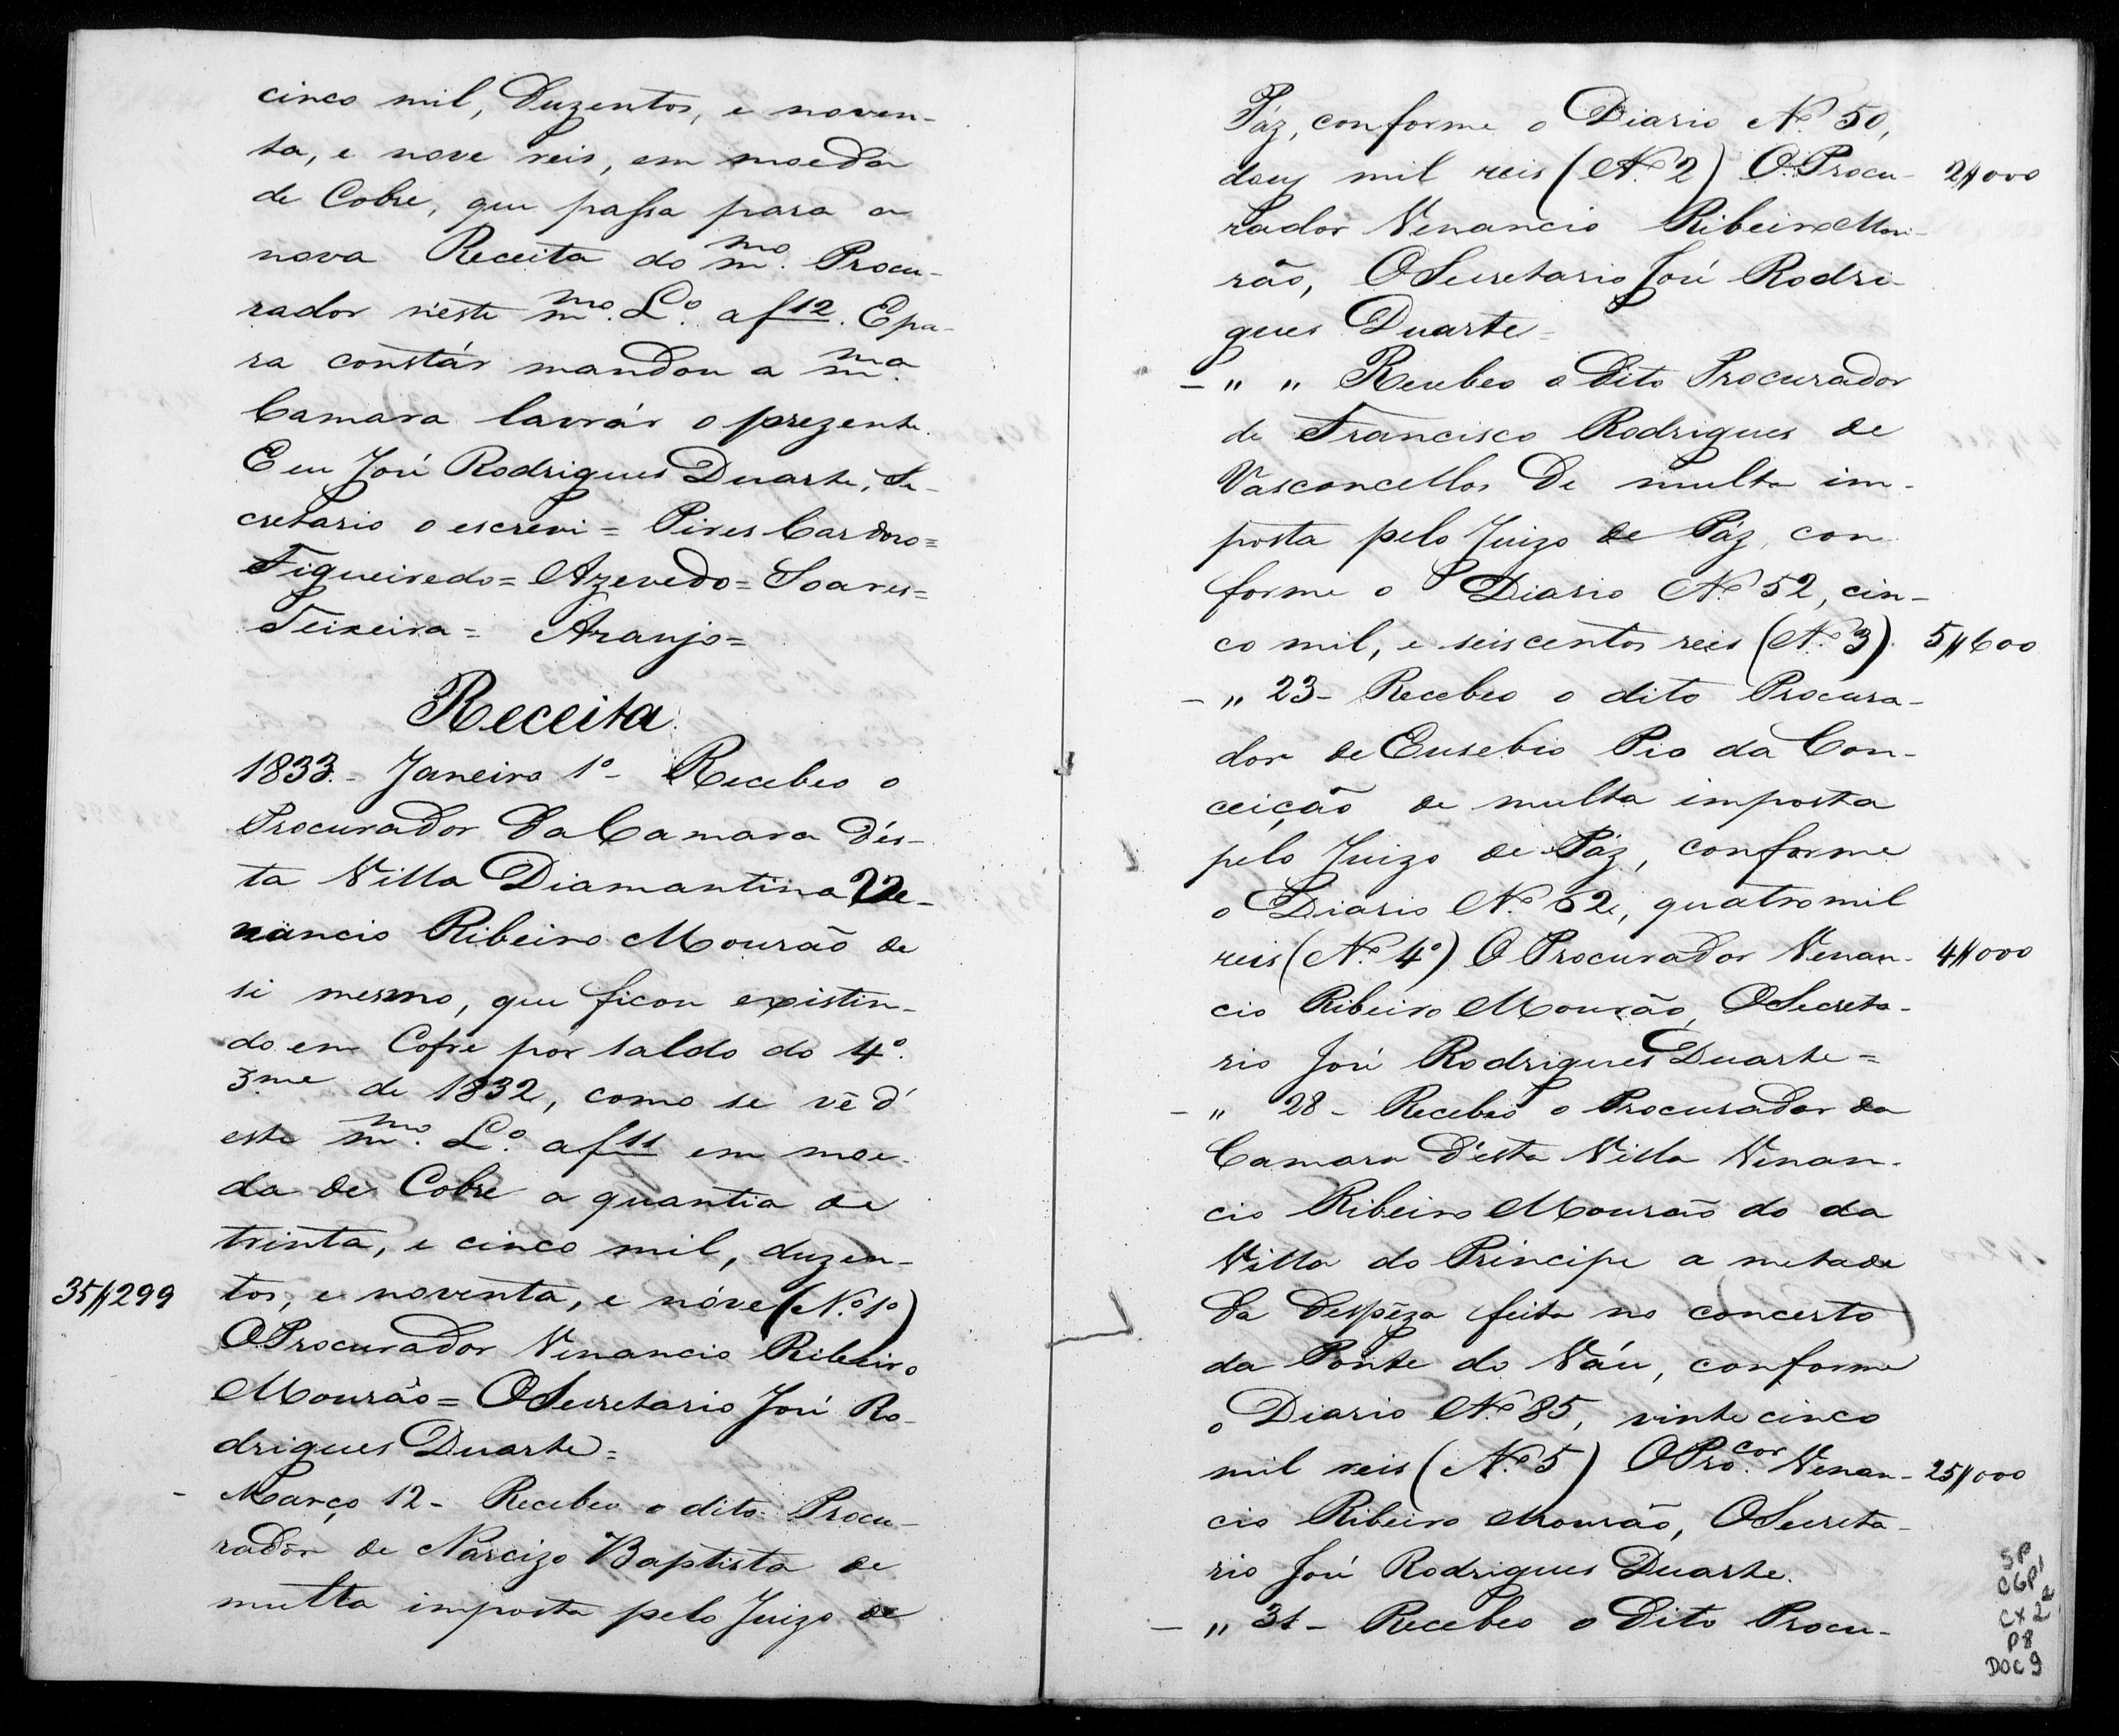 cinco mil, duzentos, e noven-
ta, e nove reis, em moeda
de Cobre, que passa para a
nova Receita do mmo. Procu-
rador neste mmo. Lo. a f 12. E pa-
ra constár mandou a mma.
Camara lavrár o prezente.
E eu José Rodrigues Duarte, Se-
cretario o escrevi = Pires Cardoso =
Figueiredo = Azevedo = Soares =
Teixeira = Araujo =
Receita
1833. - Janeiro 1o - Recebeo o
Procurador da Camara dés-
ta Villa Diamantina Ve-
nancio Ribeiro Mourão de
si mesmo, que ficou existin-
do em Cofre por saldo do 4o.
3me de 1832, como se vê d'
este mmo. Lo. a f 11 em moe-
da de Cobre a quantia de
trinta, e cinco mil, duzen-
35$299 tos, e noventa, e nóve (No. 1o)
O Procurador Venancio Ribeiro
Mourão = O Secretario José Ro-
drigues Duarte =
- Março 12 - Recebeo o dito Procu-
rador de Narcizo Baptista de
multa imposta pelo Juizo de
Páz, conforme o Diario No. 50,
dous mil reis (No. 2) O Procu- 2$000
rador Venancio Ribeiro Mou-
rão, O Secretario José Rodri-
gues Duarte =
- " " Recebeo o dito Procurador
de Francisco Rodrigues de
Vasconcellos de multa im-
posta pelo Juizo de Páz, con
forme o Diario No. 52, cin-
co mil, e seiscentos reis (No. 3). 5$600
- " 23 - Recebeo o dito Procura-
dor de Eusebio Pio da Con-
ceição de multa imposta
pelo Juizo de Páz, conforme
o Diario No. 62, quatro mil
reis (No. 4o) O Procurador Venan- 4$000
cio Ribeiro Mourão, O Secreta-
rio José Rodrigues Duarte =
- " 28 - Recebeo o Procurador da
Camara d'ésta Villa Venan-
cio Ribeiro Mourão do da
Villa do Principe a metade
da despeza feita no concerto
da Ponte do Váu, conforme
o Diario No. 85, vinte cinco
mil reis (No. 5) O Procor. Venan- 25$000
cio Ribeiro Mourão, O Secreta-
rio José Rodrigues Duarte.
- " 31 - Recebeo o dito Procu-
SP
C6P1
CX 22
P8
DOC 9